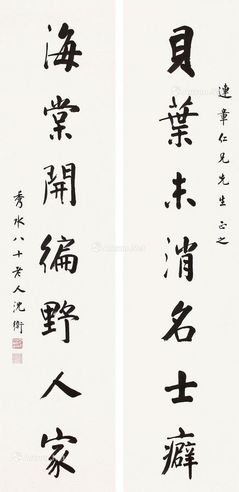 連章仁兄先生正之
貝葉未消名士癖
海棠開徧野人家
秀水八十老人沈衛